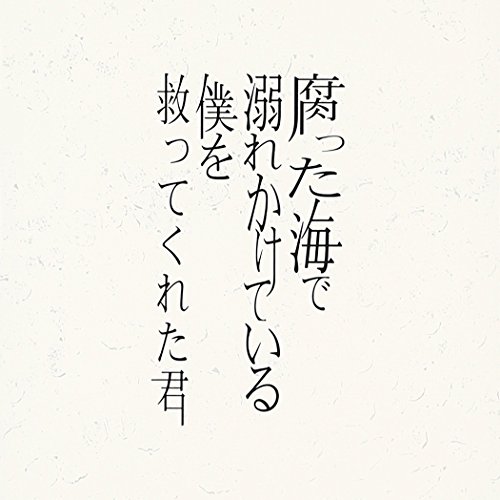 腐った海で
溺れかけている
僕を
救ってくれた君